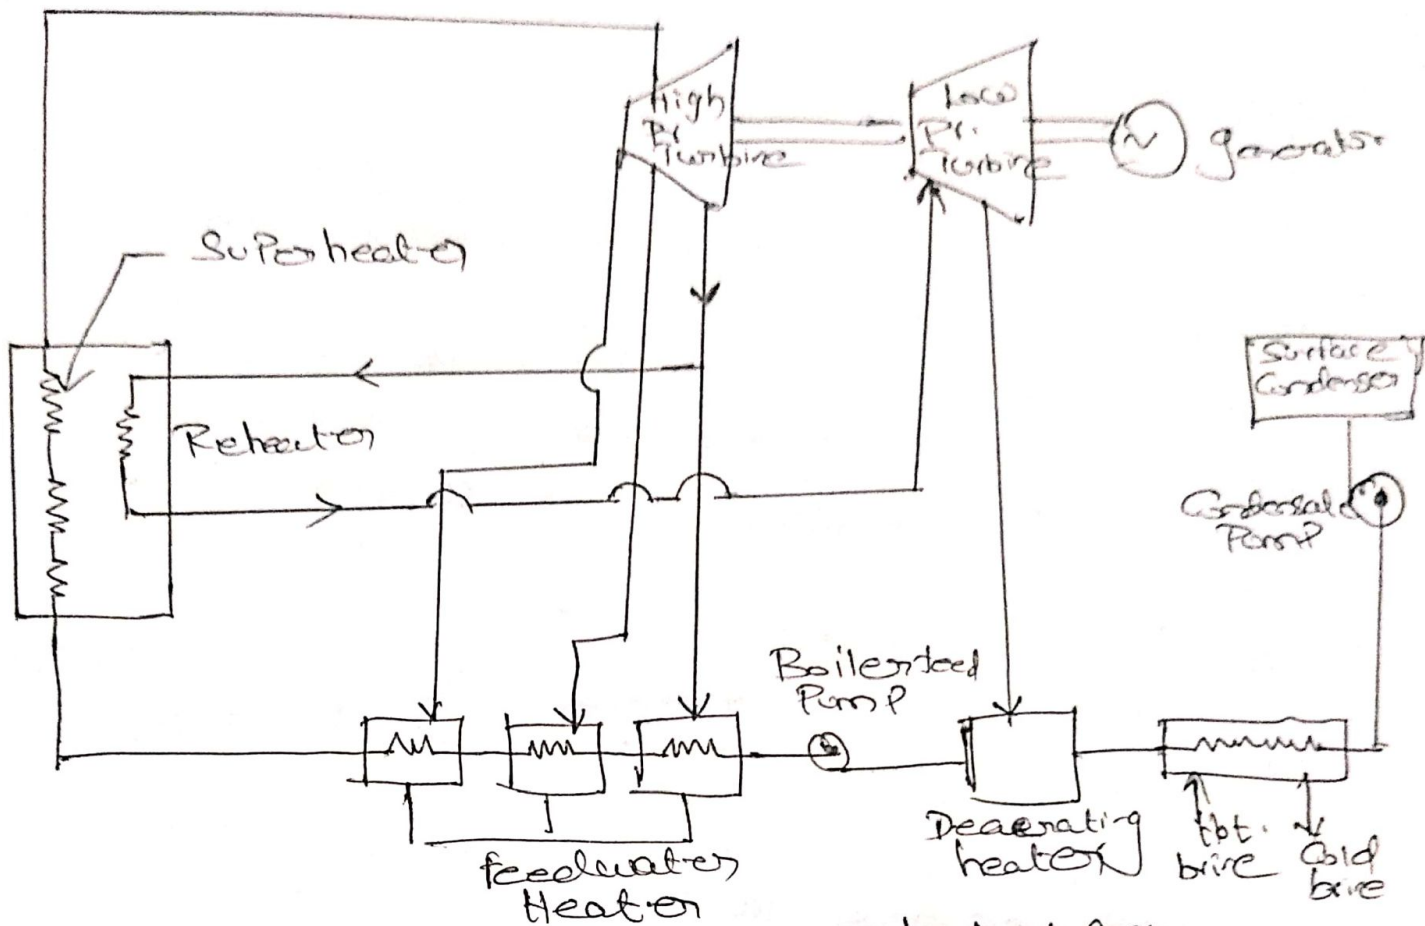 High
Pr
Turbine
Low
Pr.
Turbine
generator
Superheater
Reheater
Surface
Condenser
Condensate
Pump
Boilerfeed
Pump
Deaerating
heater
Hot.
brine
Cold
brine
feedwater
Heater